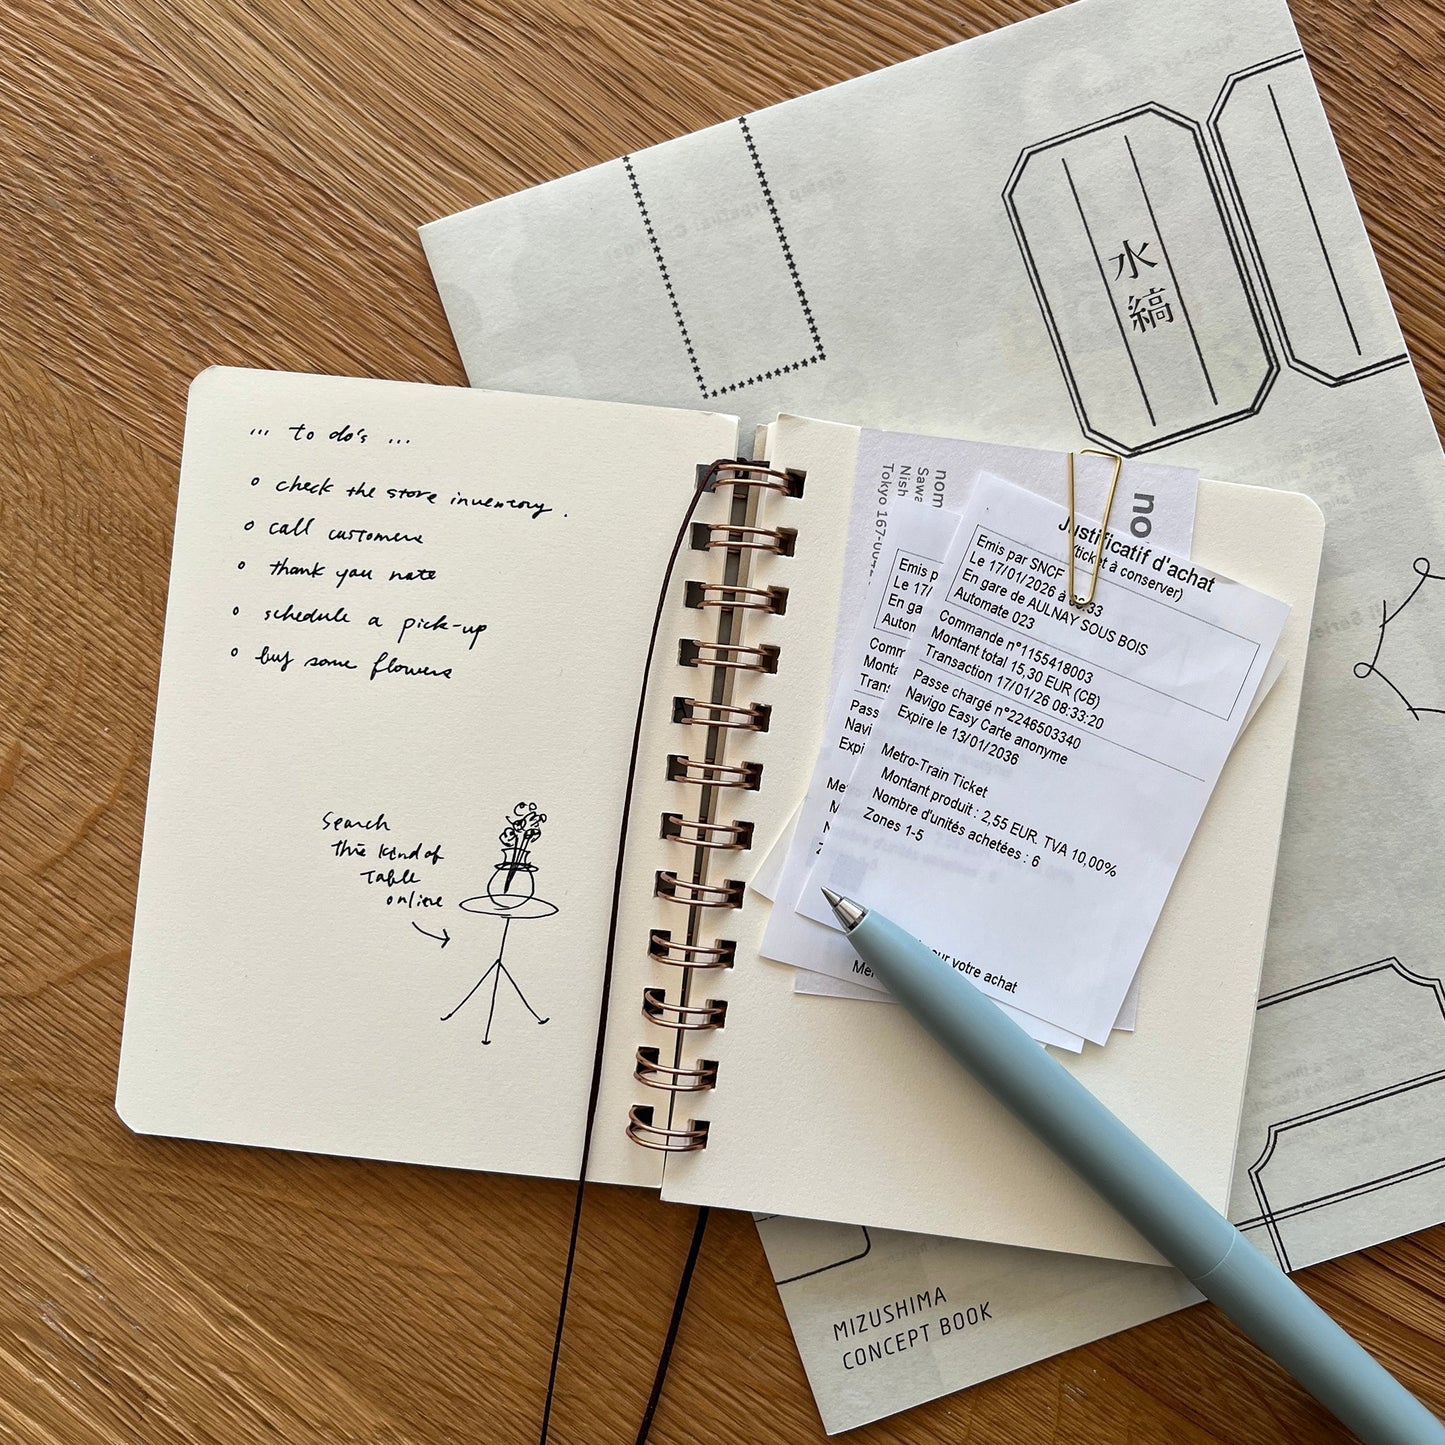 ... to do's ...
check the store inventory.
call customers
thank you note
schedule a pick-up
buy some flowers
Search
this kind of
table
online
nom
Sawa
Nish
Tokyo 167-00
no
Emis p
Le 17/
En ga
Autom
Comm
Monta
Trans
Pass
Navi
Expi
Me
M
N
Z
Mer
Justificatif d'achat
(ticket à conserver)
Emis par SNCF
Le 17/01/2026 à 33
En gare de AULNAY SOUS BOIS
Automate 023
Commande n°1155418003
Montant total 15,30 EUR (CB)
Transaction 17/01/26 08:33:20
Passe chargé n°2246503340
Navigo Easy Carte anonyme
Expire le 13/01/2036
Metro-Train Ticket
Montant produit : 2,55 EUR. TVA 10,00%
Nombre d'unités achetées : 6
Zones 1-5
ur votre achat
水縞
MIZUSHIMA
CONCEPT BOOK